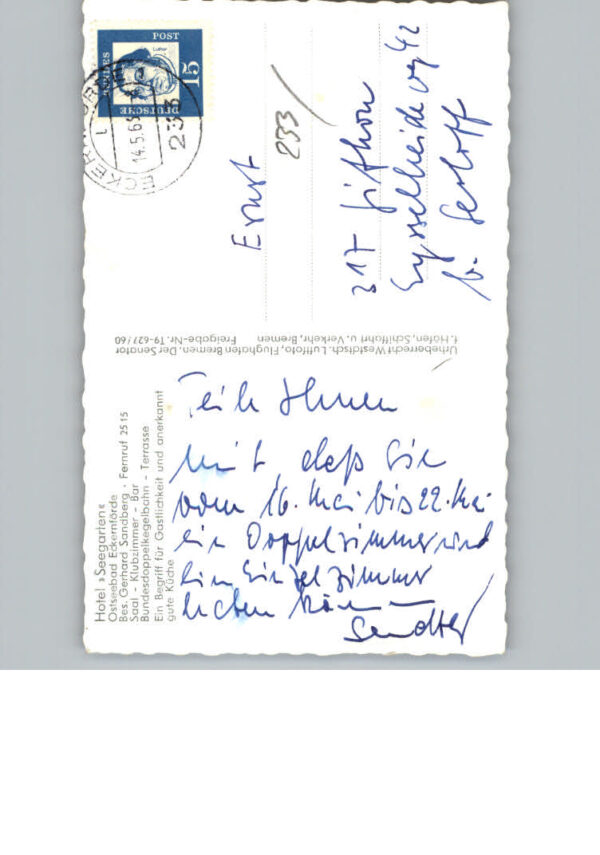 Hotel »Seegarten«
Ostseebad Eckernförde
Bes. Gerhard Sandberg · Fernruf 2515
Saal - Klubzimmer - Bar
Bundesdoppelkegelbahn - Terrasse
Ein Begriff für Gastlichkeit und anerkannt
gute Küche
Teile Ihnen
mit, daß Sie
vom 16. Mai bis 22. Mai
ein Doppelzimmer und
ein Einzelzimmer
haben
Urheberrecht Westdtsch. Luftfoto, Flughafen Bremen. Der Senator
f. Häfen, Schiffahrt u. Verkehr, Bremen Freigabe-Nr. T9-627/60
DEUTSCHE
BUNDES
POST
15
Luther
ECKERNFÖRDE
14.5.63
233
Ernst
233/
317 Gifhorn
42
b.